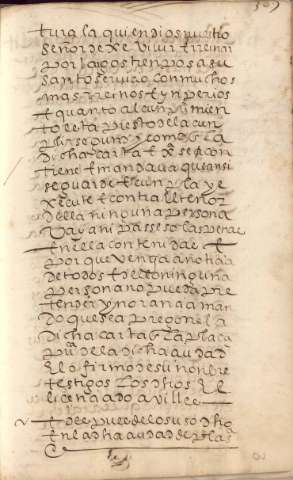 tura la qui en dios nuestro
señor dexe vivir e rreinar
por largos tienpos a su
santo serviçio con muchos
mas rreinos e ynperios
e quanto al cunplimien
to esta presto de la cun
plir segun y como en la
dicha carta e se con
tiene e mandava que ansi
se guarde e cunpla y e
xecute e contra el tenor
della ninguna persona
vaya ni passe so las penas
en ella contenidas e
porque venga a notiçia
de todos e dello ninguna
persona no pueda pre
tender ynorançia man
do que sea pregonela
dicha carta en la plaça
pu ca de la dicha çiudad
e lo firmo de su nonbre
testigos los dhos el
liçençiado a villee
e despues de lo suso dho
en la dha çiudad de